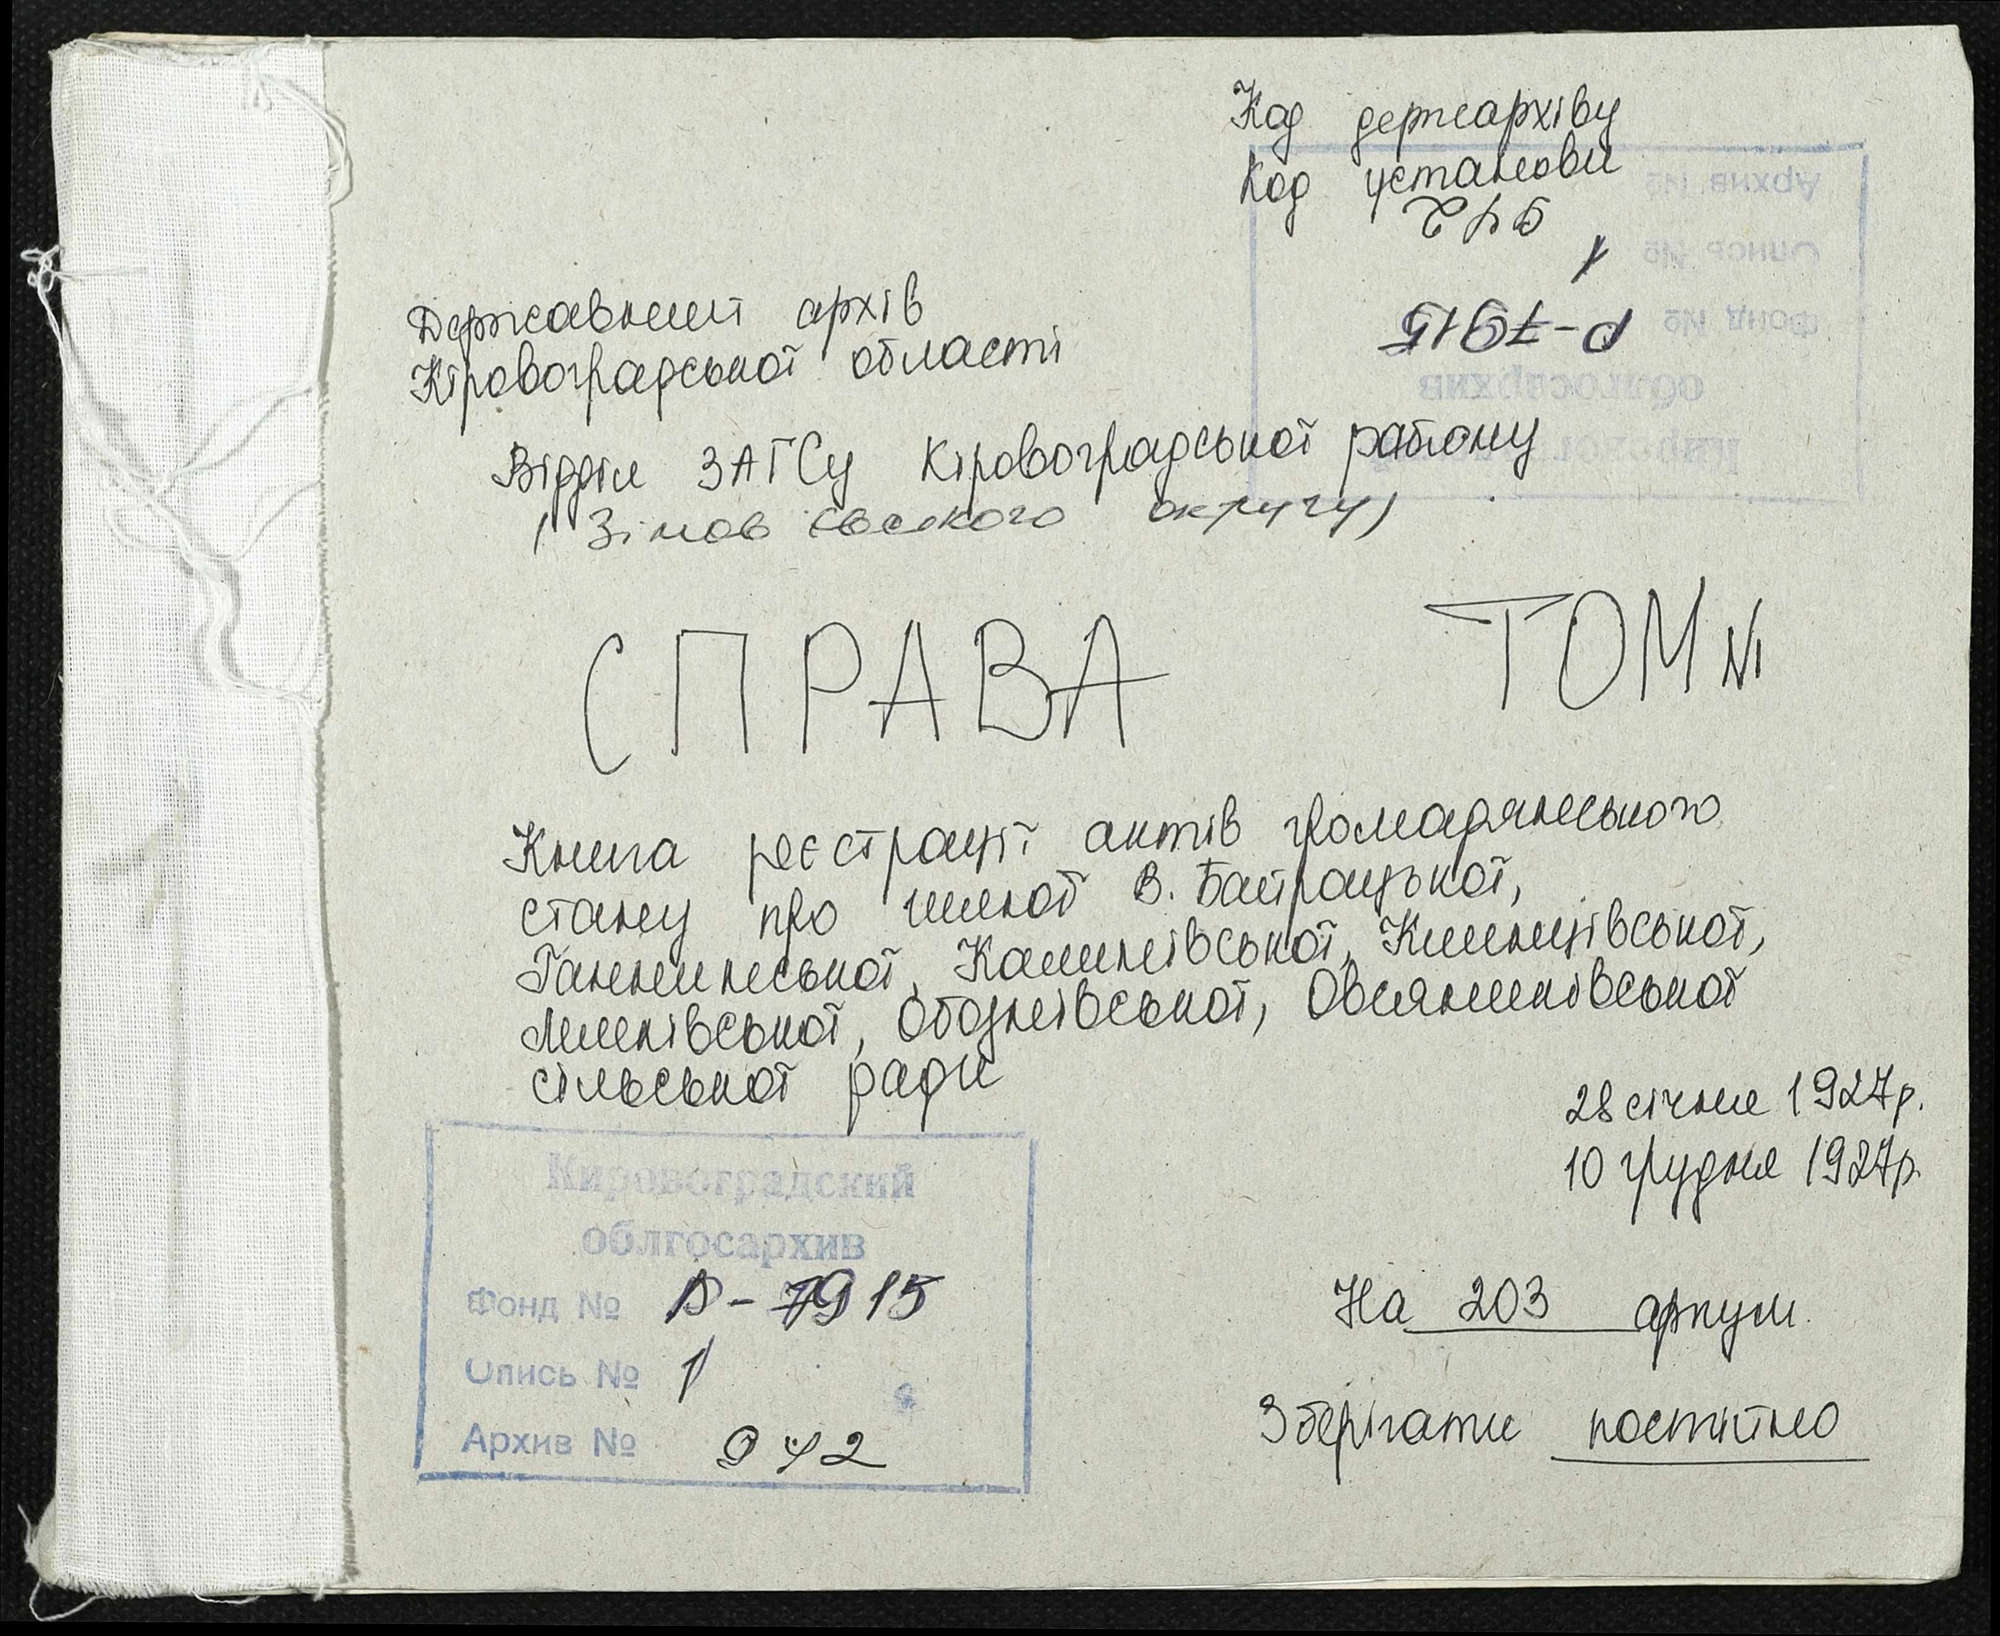 Код держархіву
Код установи
Архив №
942
Опись №
1
Фонд №
Р-7915
облгосархив
Державний архів
Кіровоградської області
Відділ ЗАГСу Кіровоградської району
(Зінов'євського округу)
СПРАВА
ТОМ №
Книга реєстрації актів громадянського
стану про шлюб В. Байрацької,
Ганнинської, Калинівської, Клинцівської,
Лелеківської, Обознівської, Овсяниківської
сільської ради
28 січня 1927р.
10 грудня 1927р.
Кировоградский
облгосархив
Фонд № Р-7915
Опись № 1
Архив № 942
На 203 аркуш.
Зберігати постійно